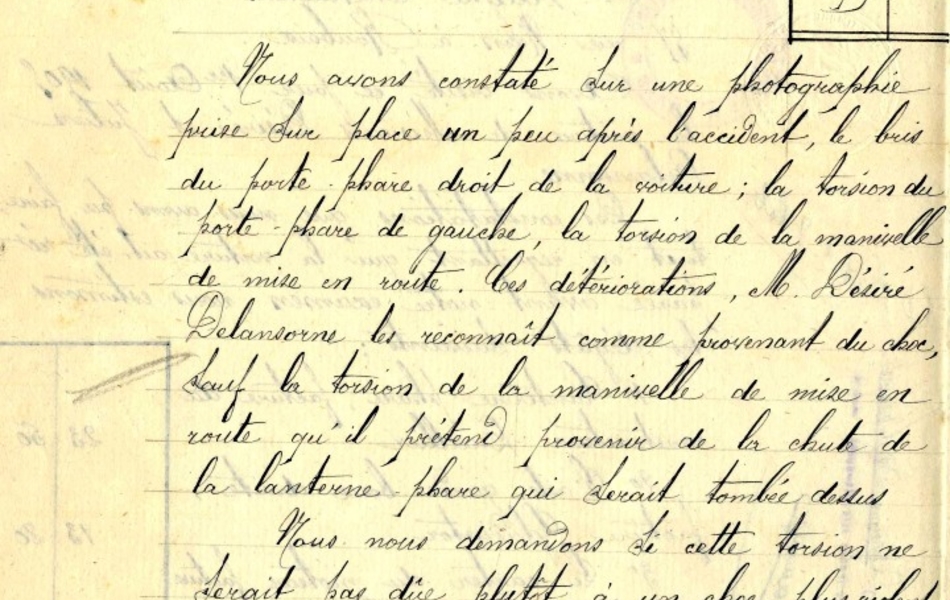 Nous avons constaté sur une photographie
prise sur place un peu après l'accident, le bris
du porte-phare droit de la voiture ; la torsion du
porte-phare de gauche, la torsion de la manivelle
de mise en route. Ces détériorations, M. Désiré
Delansorne les reconnaît comme provenant du choc,
sauf la torsion de la manivelle de mise en
route qu'il prétend provenir de la chute de
la lanterne-phare qui serait tombée dessus
Nous nous demandons si cette torsion ne
serait pas dûe plutôt à un choc plus violent